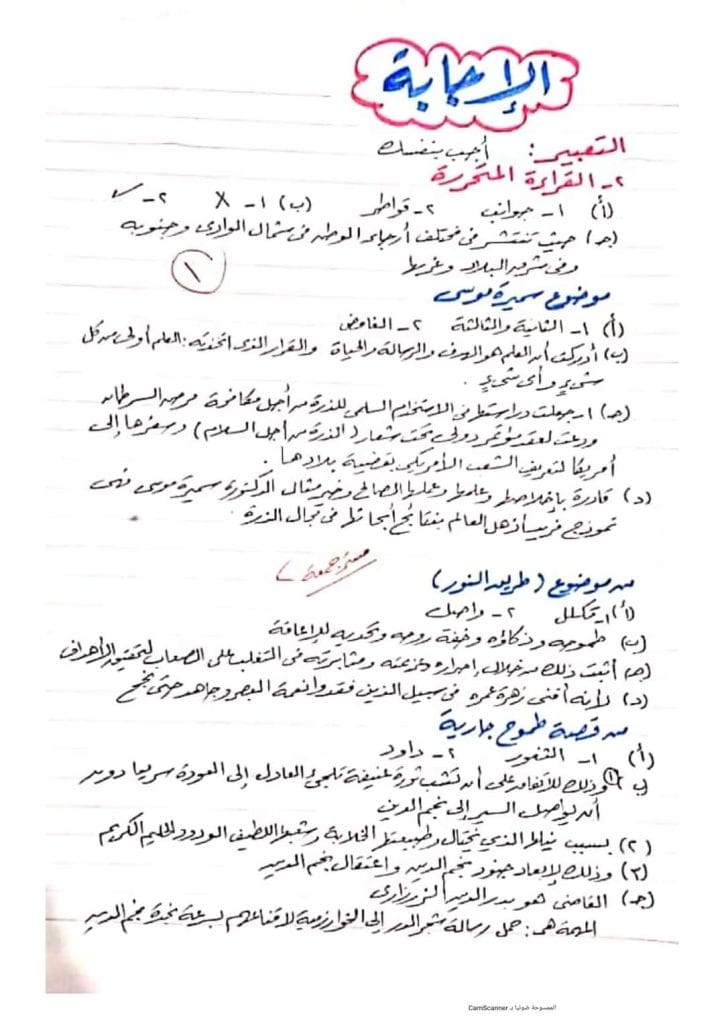 الإجابة
التعبير: أجب بنفسك
٢- القراءة المتحررة
(أ) ١- جوانب ٢- قواطر (ب) ١- X ٢- ✓
(جـ) حيث تنتشر فى مختلف أرجاء الوطن فى شمال الوادى وجنوبه
وفى شرق البلاد وغربها
١
موضوع سميرة موسى
(أ) ١- الثانية والثالثة ٢- الغامض
(ب) أدركت أن العلم هو الهدف والرسالة والحياة والقرار الذى اتخذته: العلم أولى من كل
شىءٍ وأى شىءٍ.
(جـ) ١- جعلت دراستها فى الاستخدام السلمى للذرة من أجل مكافحة مرض السرطان
ودعت لعقد مؤتمر دولى تحت شعار (الذرة من أجل السلام) وسفرها إلى
أمريكا لتعريف الشعب الأمريكي بقضية بلادها.
(د) قادرة بإخلاصها وعلمها وعملها الصالح وخير مثال الدكتورة سميرة موسى فهى
نموذج فريد أذهل العالم بنتائج أبحاثها فى مجال الذرة.
من موضوع (طريق النور)
(أ) ١- تكلل ٢- واصل
(ب) طموحه وذكاؤه وخفة روحه وتحديه للإعاقة
(جـ) أثبت ذلك من خلال إصراره وعزيمته ومثابرته فى التغلب على الصعاب لتحقيق الأهداف
(د) لأنه أفنى زهرة عمره فى سبيل الذين فقدوا نعمة البصر وجاهد حتى نجح
من قصة طموح جارية
(أ) ١- الثغور ٢- داود
ب) (١) وذلك للاتفاق على أن تنشب ثورة عنيفة تلجئ العادل إلى العودة سريعا دون
أن يواصل السير إلى نجم الدين
(٢) بسبب نيلها الذي يختال وطبيعتها الخلابة وشعبها اللطيف الودود الحليم الكريم
(٣) وذلك لإبعاد جنود نجم الدين واعتقال نجم الدين
(جـ) القاضى هو بدر الدين الزرزارى
المهمة هى: حمل رسالة شجر الدر إلى الخوارزمية لإقناعهم بسرعة نجدة نجم الدين
الممسوحة ضوئيا بـ CamScanner